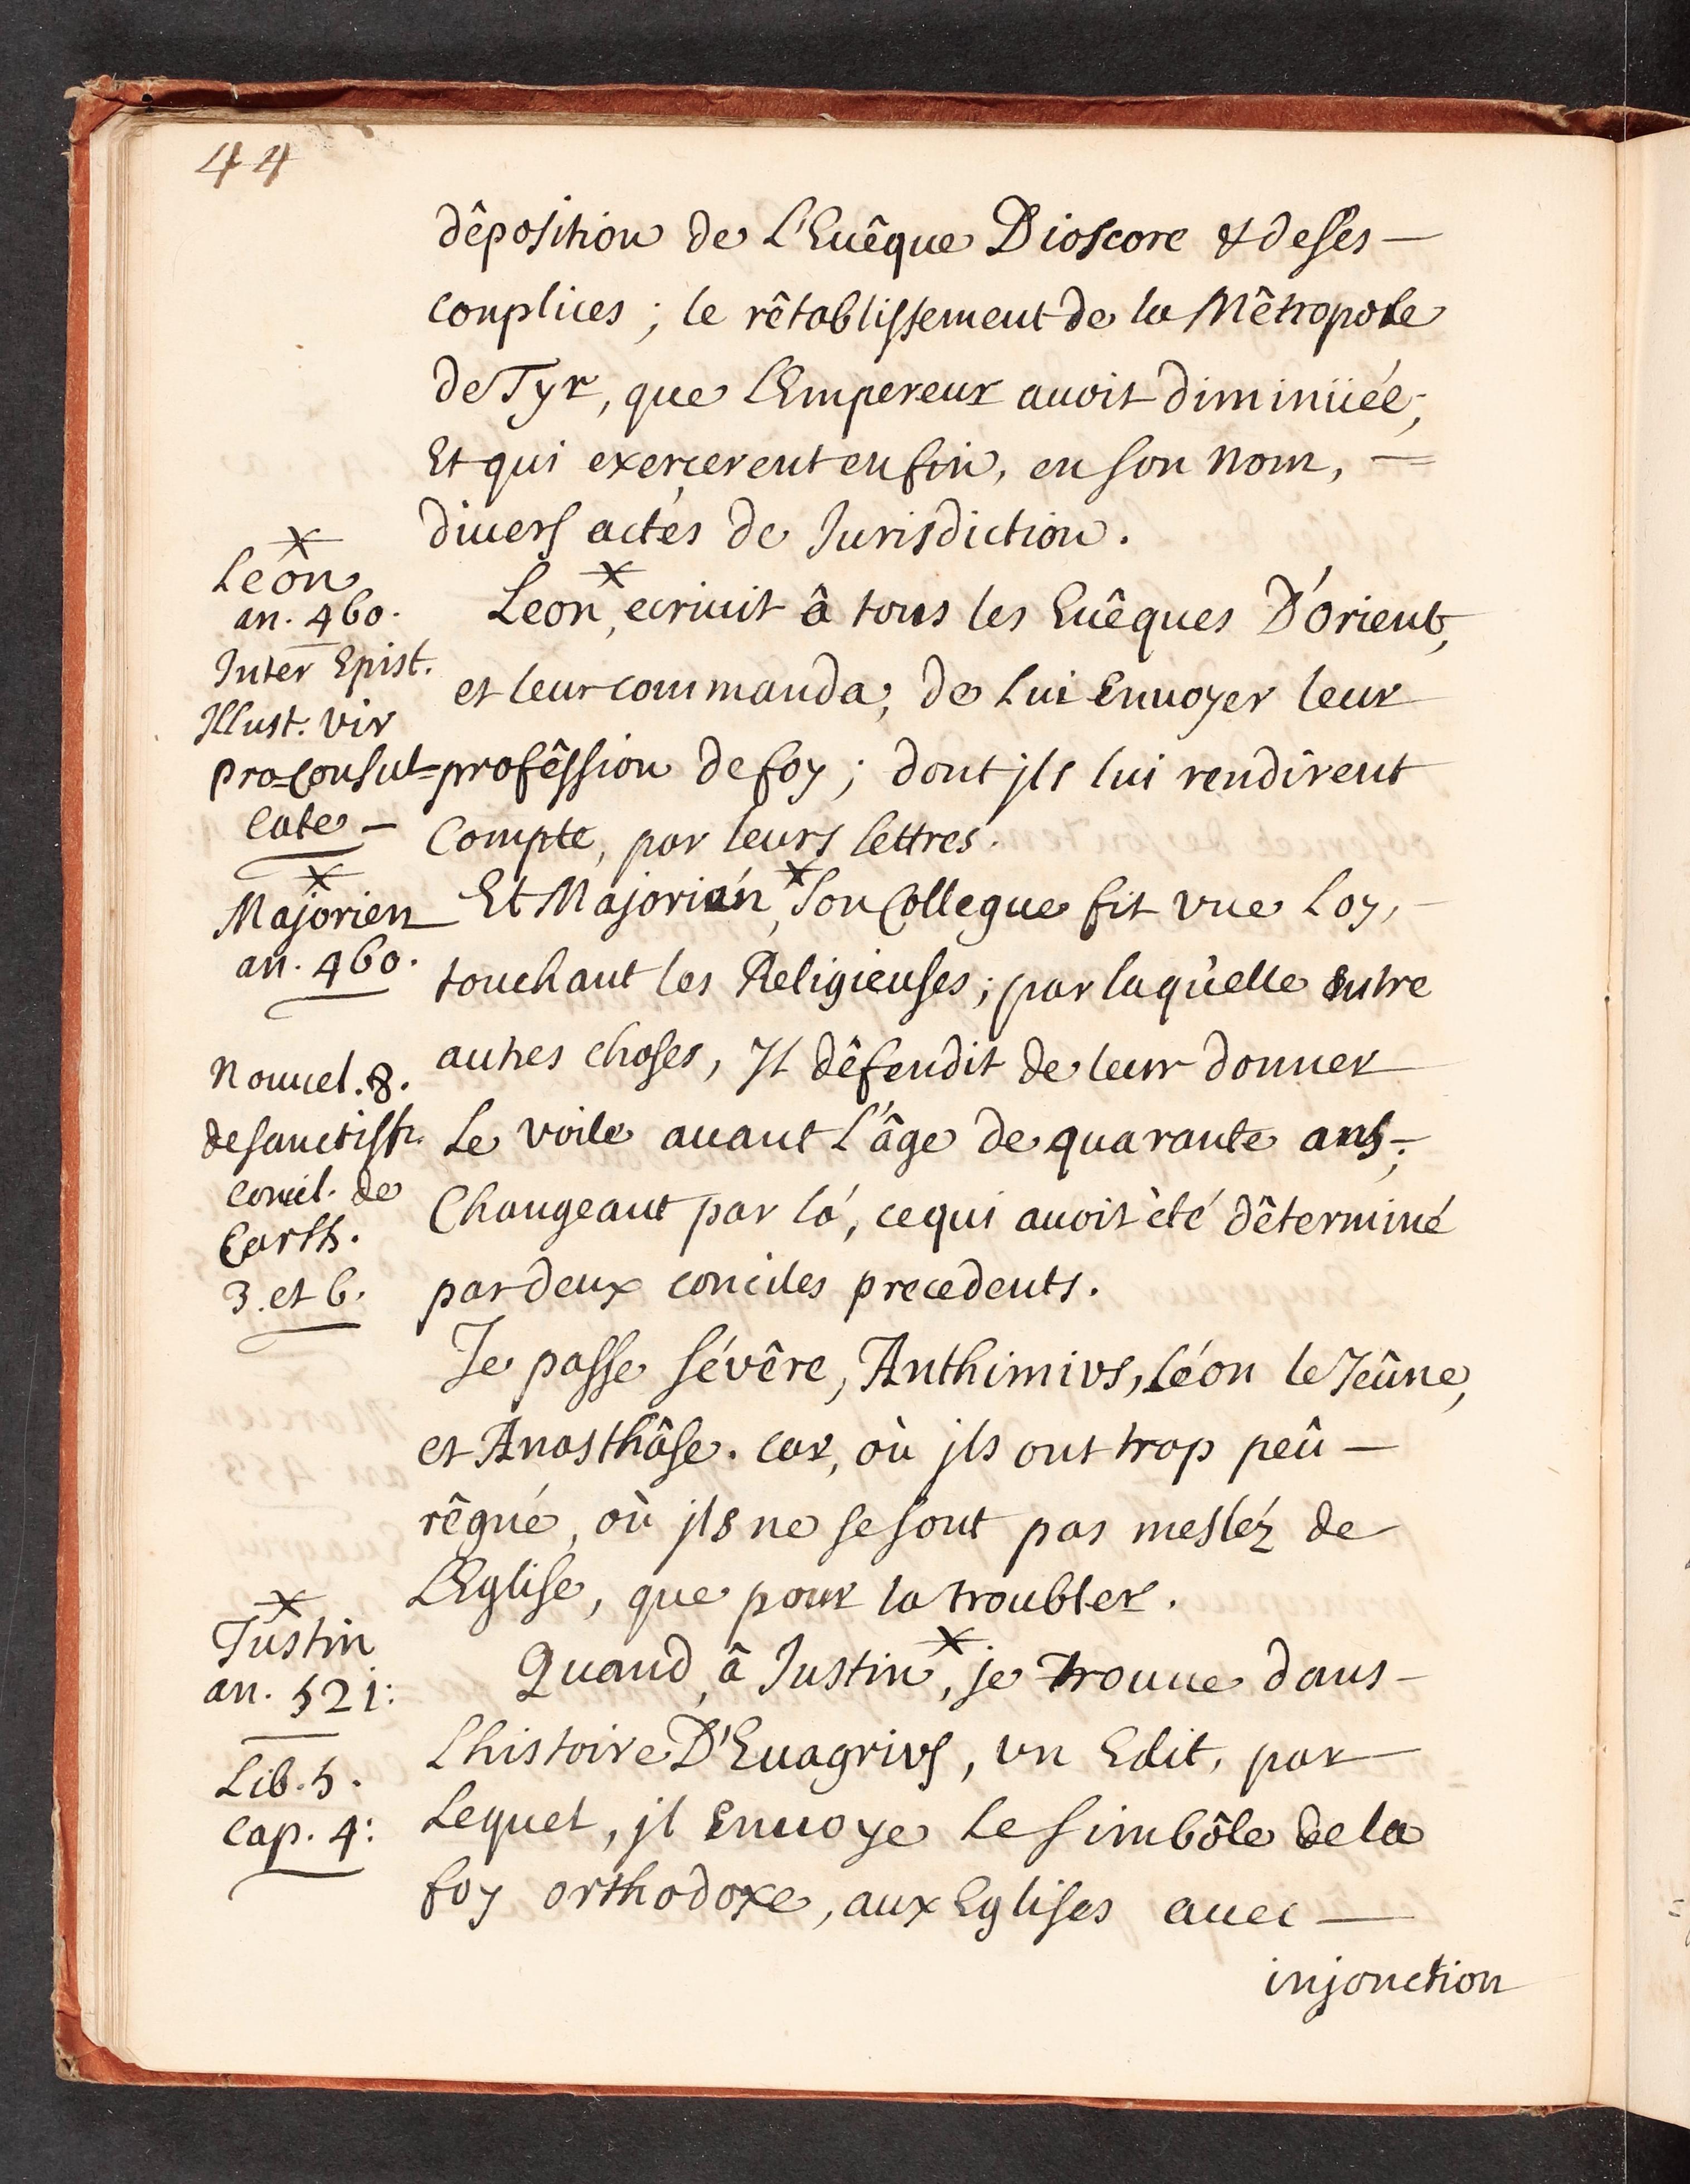 44
dêposition de L'Euêque Dioscore & de ses —
complices ; le rêtablissement de la Mêtropole
de Tyr, que L'Empereur auoit diminüée ;
Et qui exercerent enfin, en son nom, =
diuers actes de Jurisdiction.
Leon,× ecriuit â tous les Euêques D'orient,
et leur commanda, de Lui Enuoyer leur
profêssion de foy ; dont jls lui rendirent
Compte, par leurs lettres.
Et Majorien,× son Collegue fit vne Loy, —
touchant les Religieuses ; par laquelle Entre
autres choses, Jl dêfendit de leur donner
Le voile auant L'âge de quarante ans ; —
Changeant par lá, ce qui auoit èté dêterminé
par deux conciles precedents.
Je passe sévêre, Anthimius, Léon le Jeûne,
et Anasthâse. car, où jls ont trop peû —
rêgné, où jls ne se sont pas mesléz de
L'Eglise, que pour la troubler.
Quand, â Justin×, je trouue dans —
L'histoire D'Euagrius, vn Edit, par —
Lequel, jl Enuoye Le simbôle de la
foy orthodoxe, aux Eglises auec —
injonction
×
Leon
an. 460.
Inter Epist.
Illust. vir
pro=Consul=
Cate —
×
Majorien
an. 460.
Nouuel. 8.
de sanctiss.
Concil. de
Carth.
3. et 6.
×
Justin
an. 521 :
Lib. 5.
Cap. 4 :